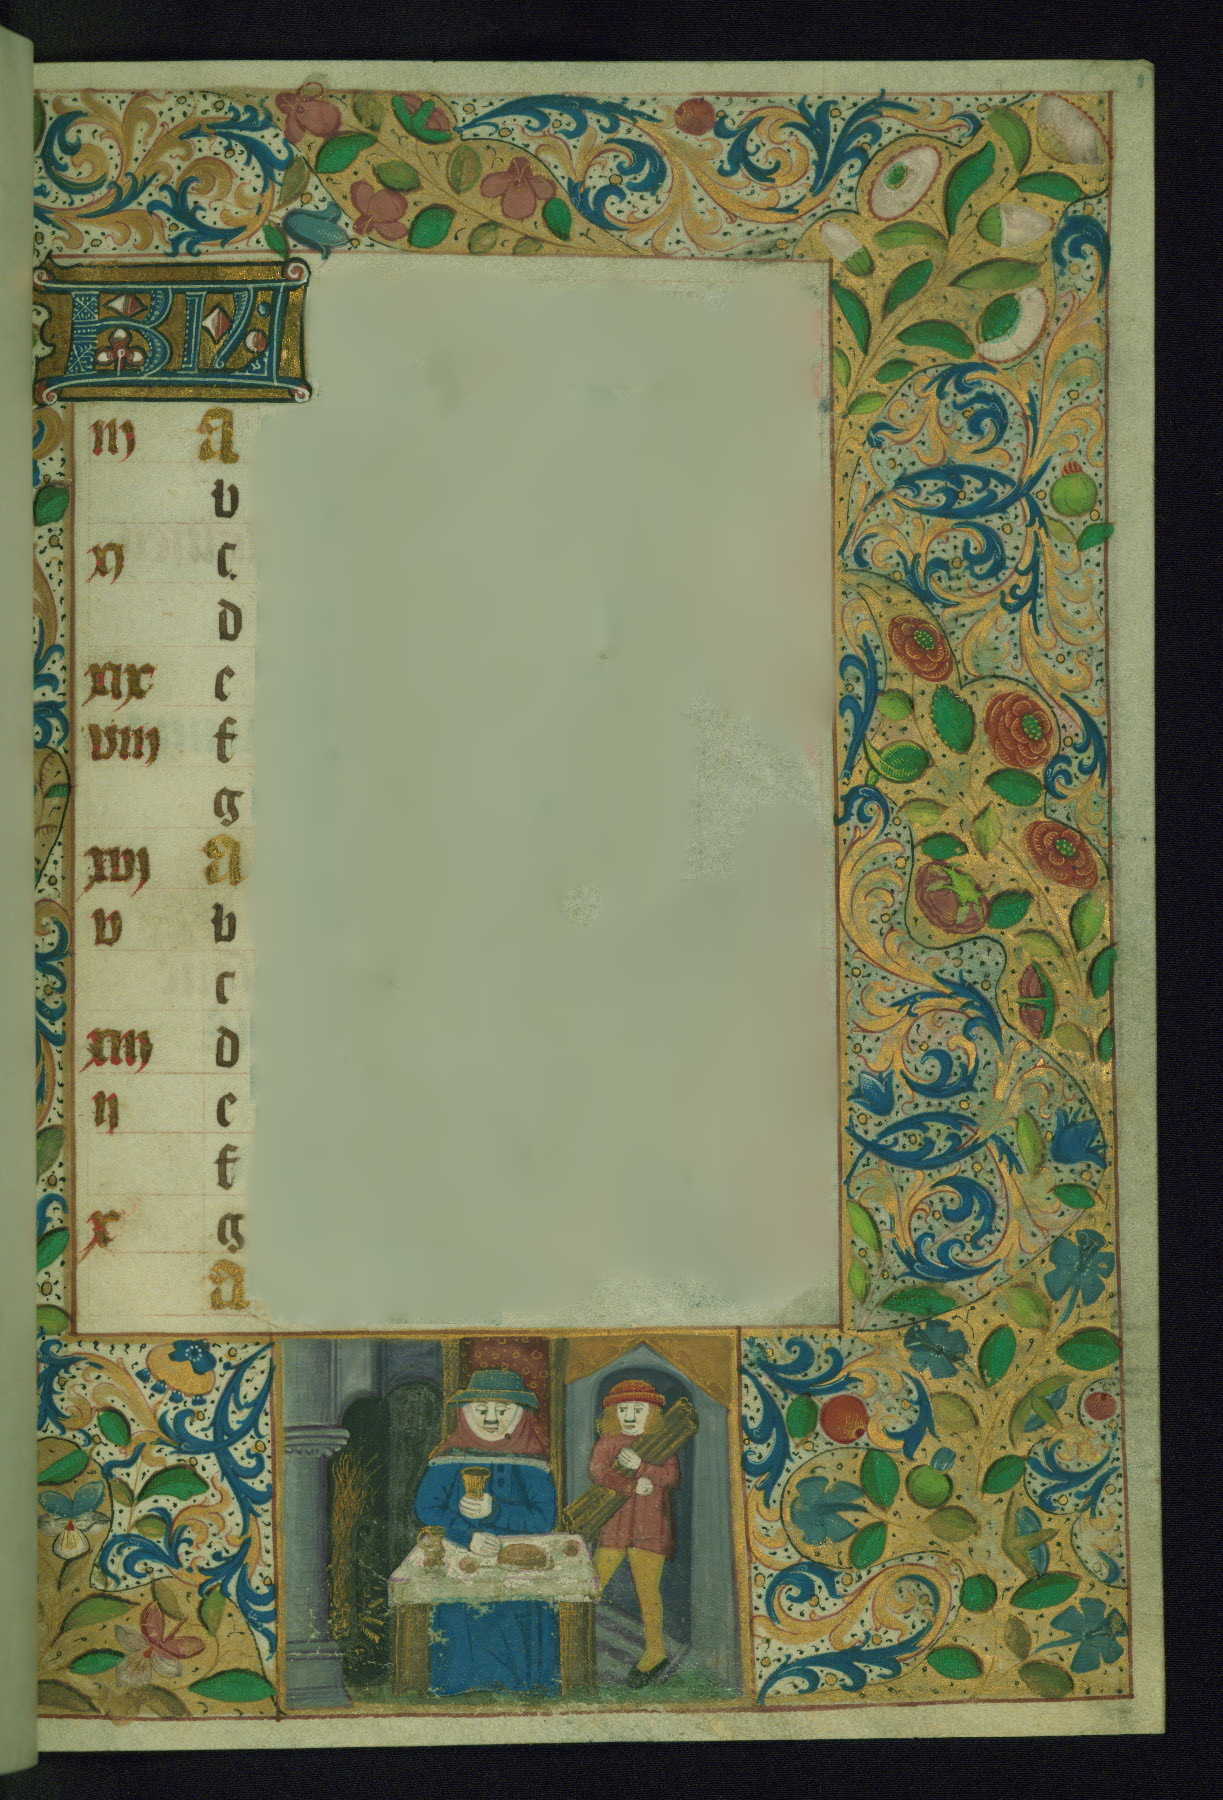 KL
iij A
b
xj c
d
xix e
viij f
g
xvj A
v b
c
xiij d
ij e
f
x g
A